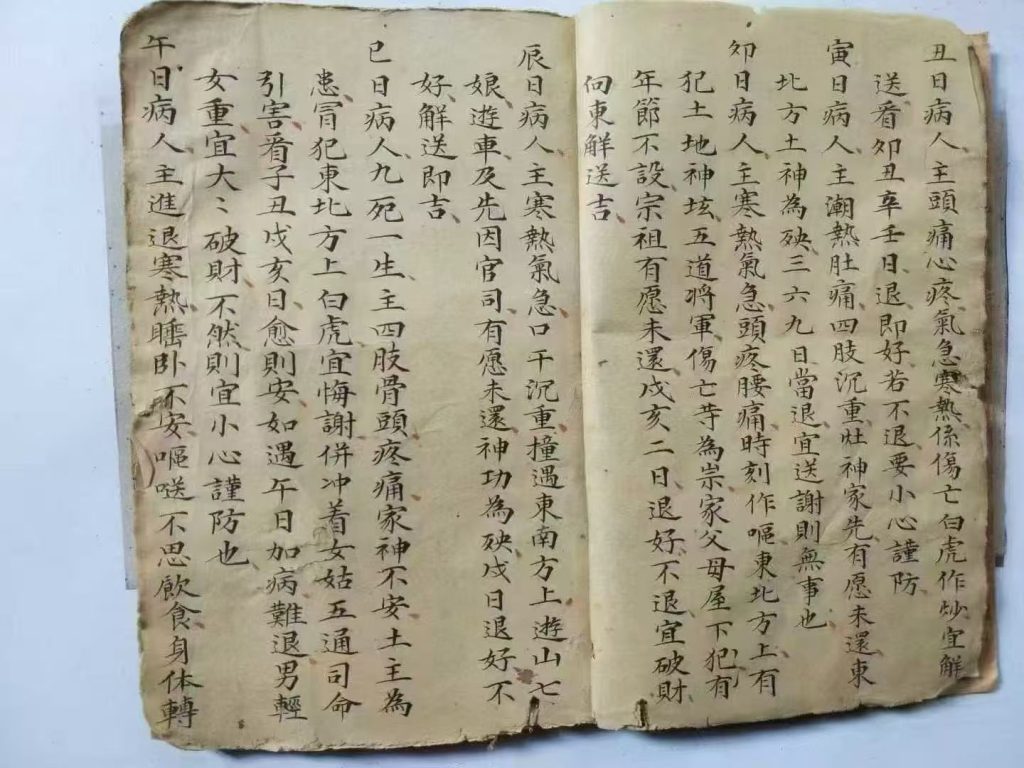 丑日病人主頭痛心疼氣急寒熱係傷亡白虎作炒宜解
送看夘丑辛壬日退即好若不退要小心謹防
寅日病人主潮熱肚痛四肢沉重灶神家先有愿未還東
北方土神為殃三六九日當退宜送謝則無事也
夘日病人主寒熱氣急頭疼腰痛時刻作嘔東北方上有
犯土地神坛五道將軍傷亡等為祟家父母屋下犯有
年節不設宗祖有愿未還戊亥二日退好不退宜破財
向東觧送吉
辰日病人主寒熱氣急口干沉重撞遇東南方上遊山七
娘遊車及先因官司有愿未還神功為殃戊日退好不
好解送即吉
巳日病人九死一生主四肢骨頭疼痛家神不安土主為
患冐犯東北方上白虎宜悔謝併冲着女姑五通司命
引害看子丑戊亥日愈則安如遇午日加病難退男輕
女重宜大〻破財不然則宜小心謹防也
午日病人主進退寒熱睡卧不安嘔𠹌不思飲食身体轉